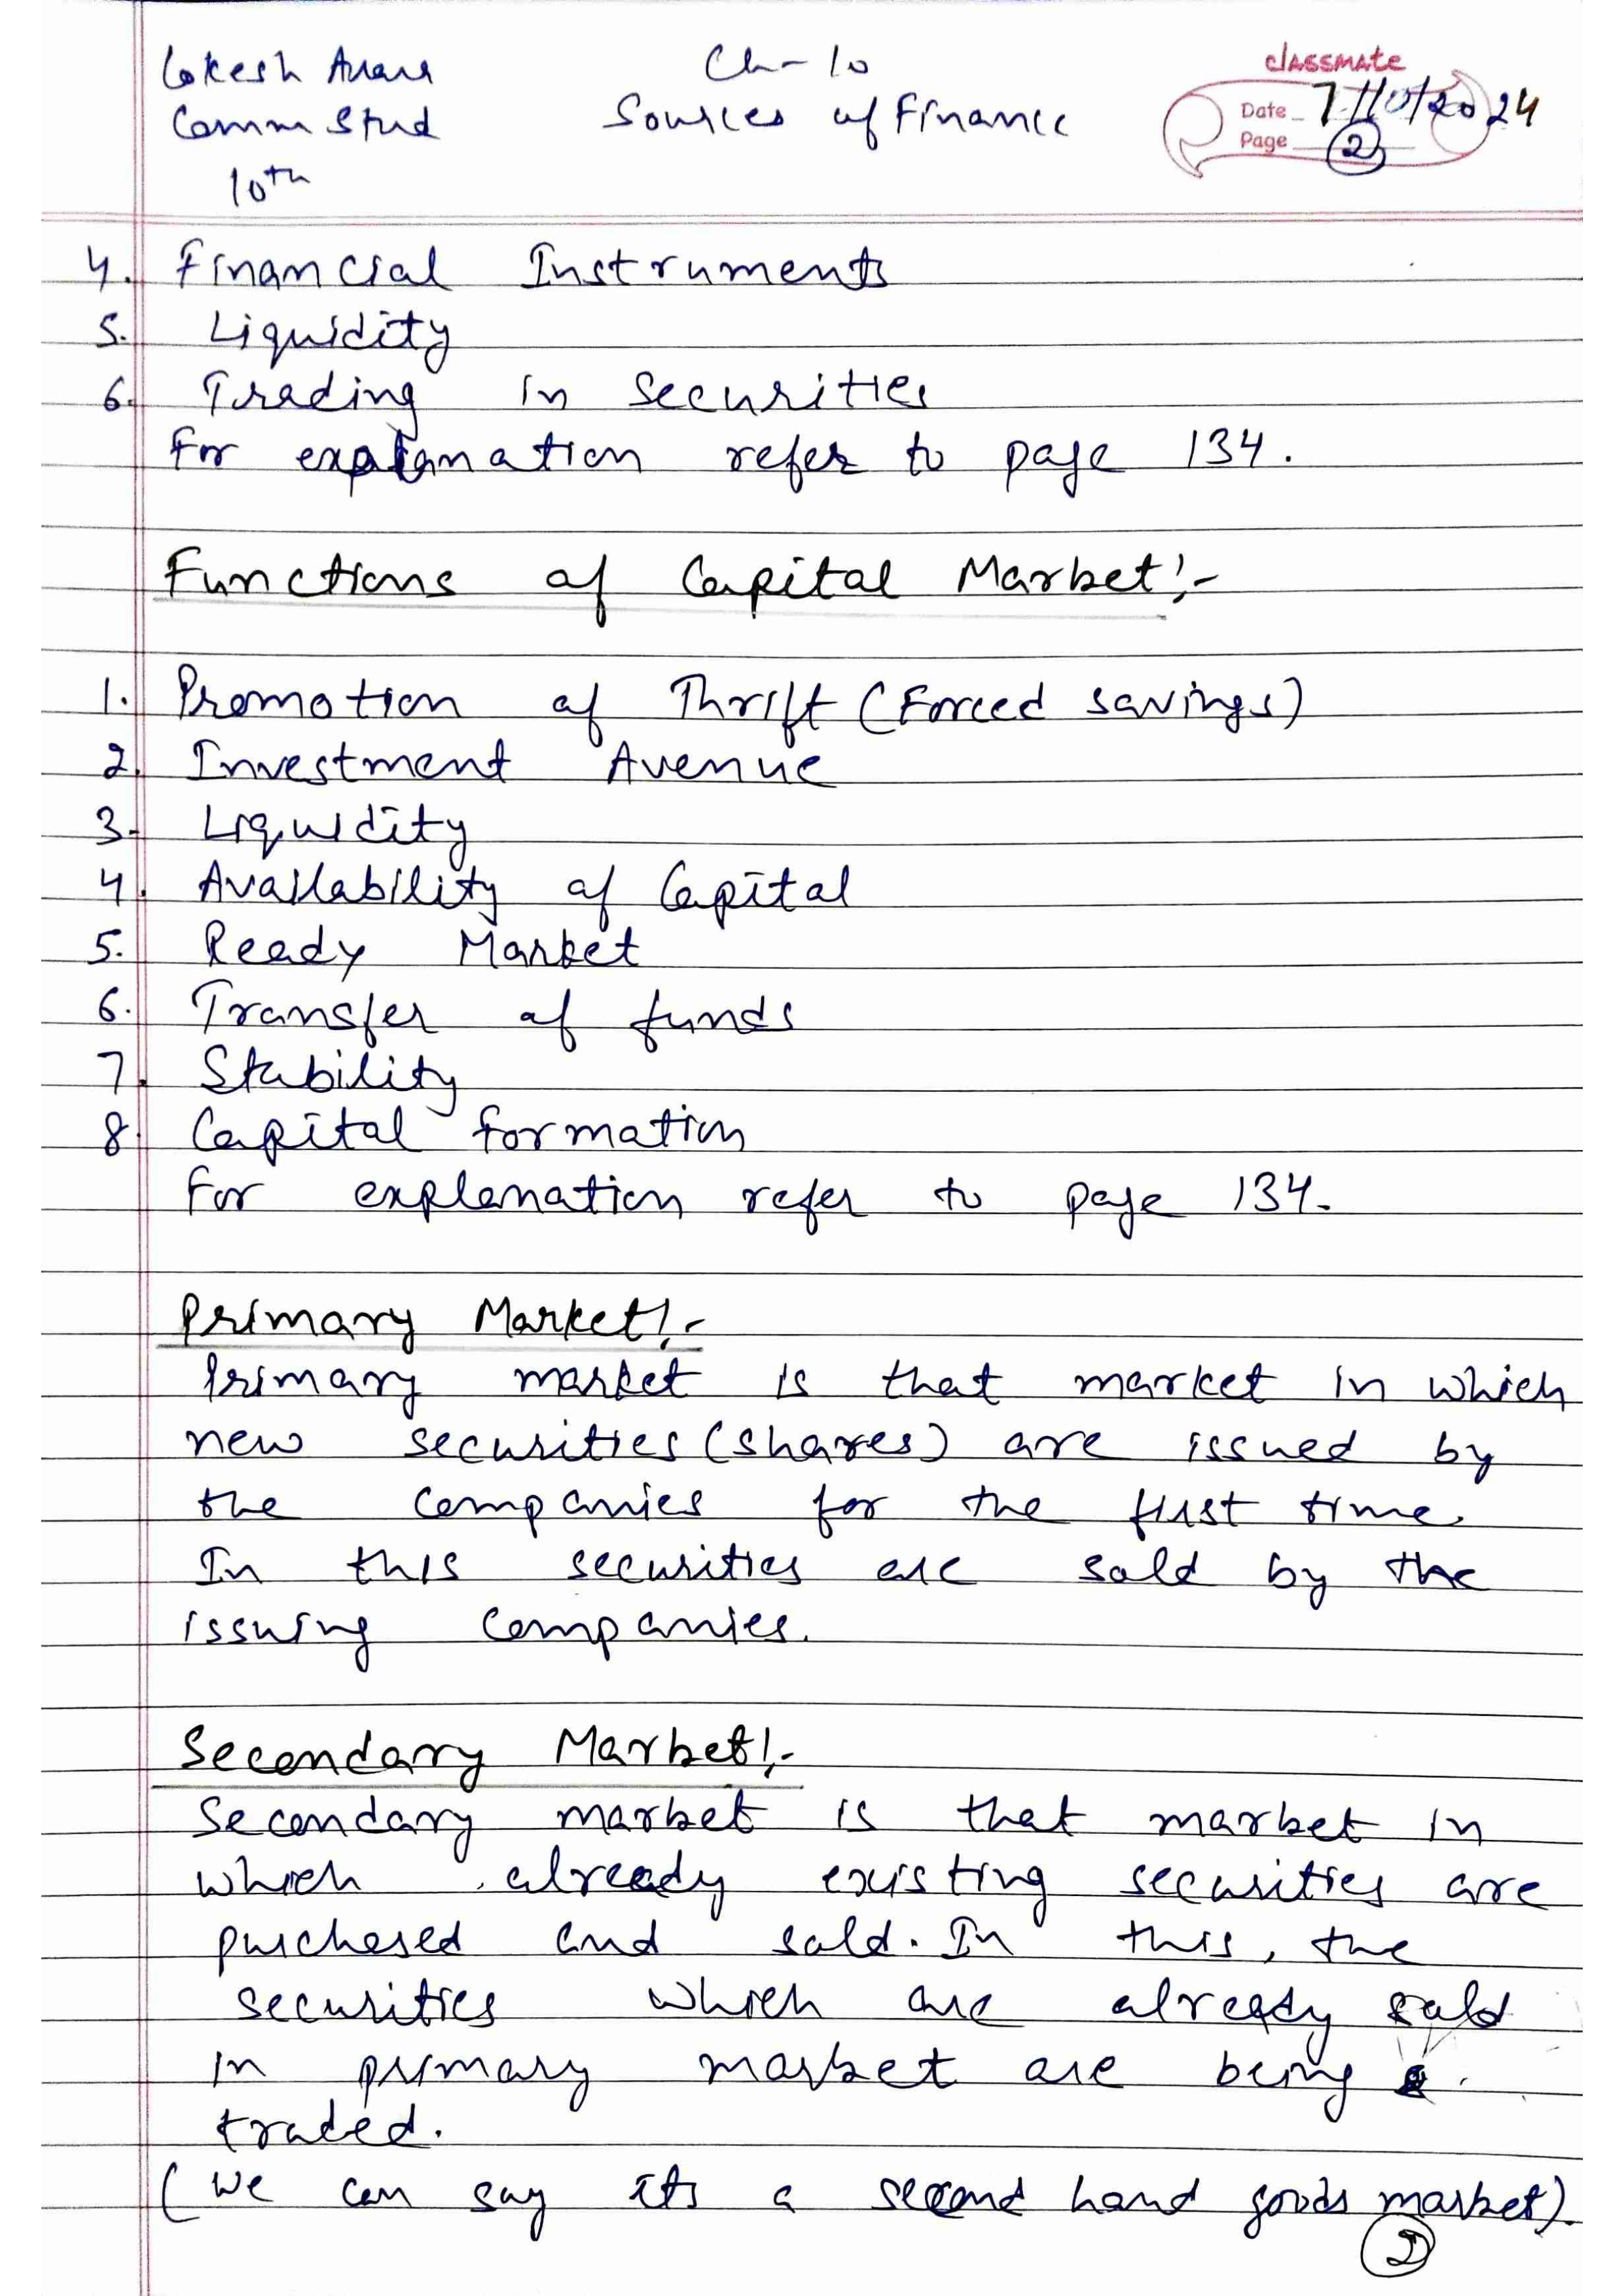 Lokesh
Comm Stud
10th
Ch-10
Sources of Finance
classmate
Date 7/10/2024
Page 2
4. Financial Instruments
5. Liquidity
6. Trading in Securities
For explanation refer to page 134.
Functions of Capital Market:-
1. Promotion of Thrift (Forced savings)
2. Investment Avenue
3. Liquidity
4. Availability of Capital
5. Ready Market
6. Transfer of funds
7. Stability
8. Capital formation
For explanation refer to page 134.
Primary Market:-
Primary market is that market in which
new securities (shares) are issued by
the companies for the first time.
In this securities are sold by the
issuing companies.
Secondary Market:-
Secondary market is that market in
which already existing securities are
purchased and sold. In this, the
securities which are already sold
in primary market are being
traded.
(We can say its a second hand goods market).
2